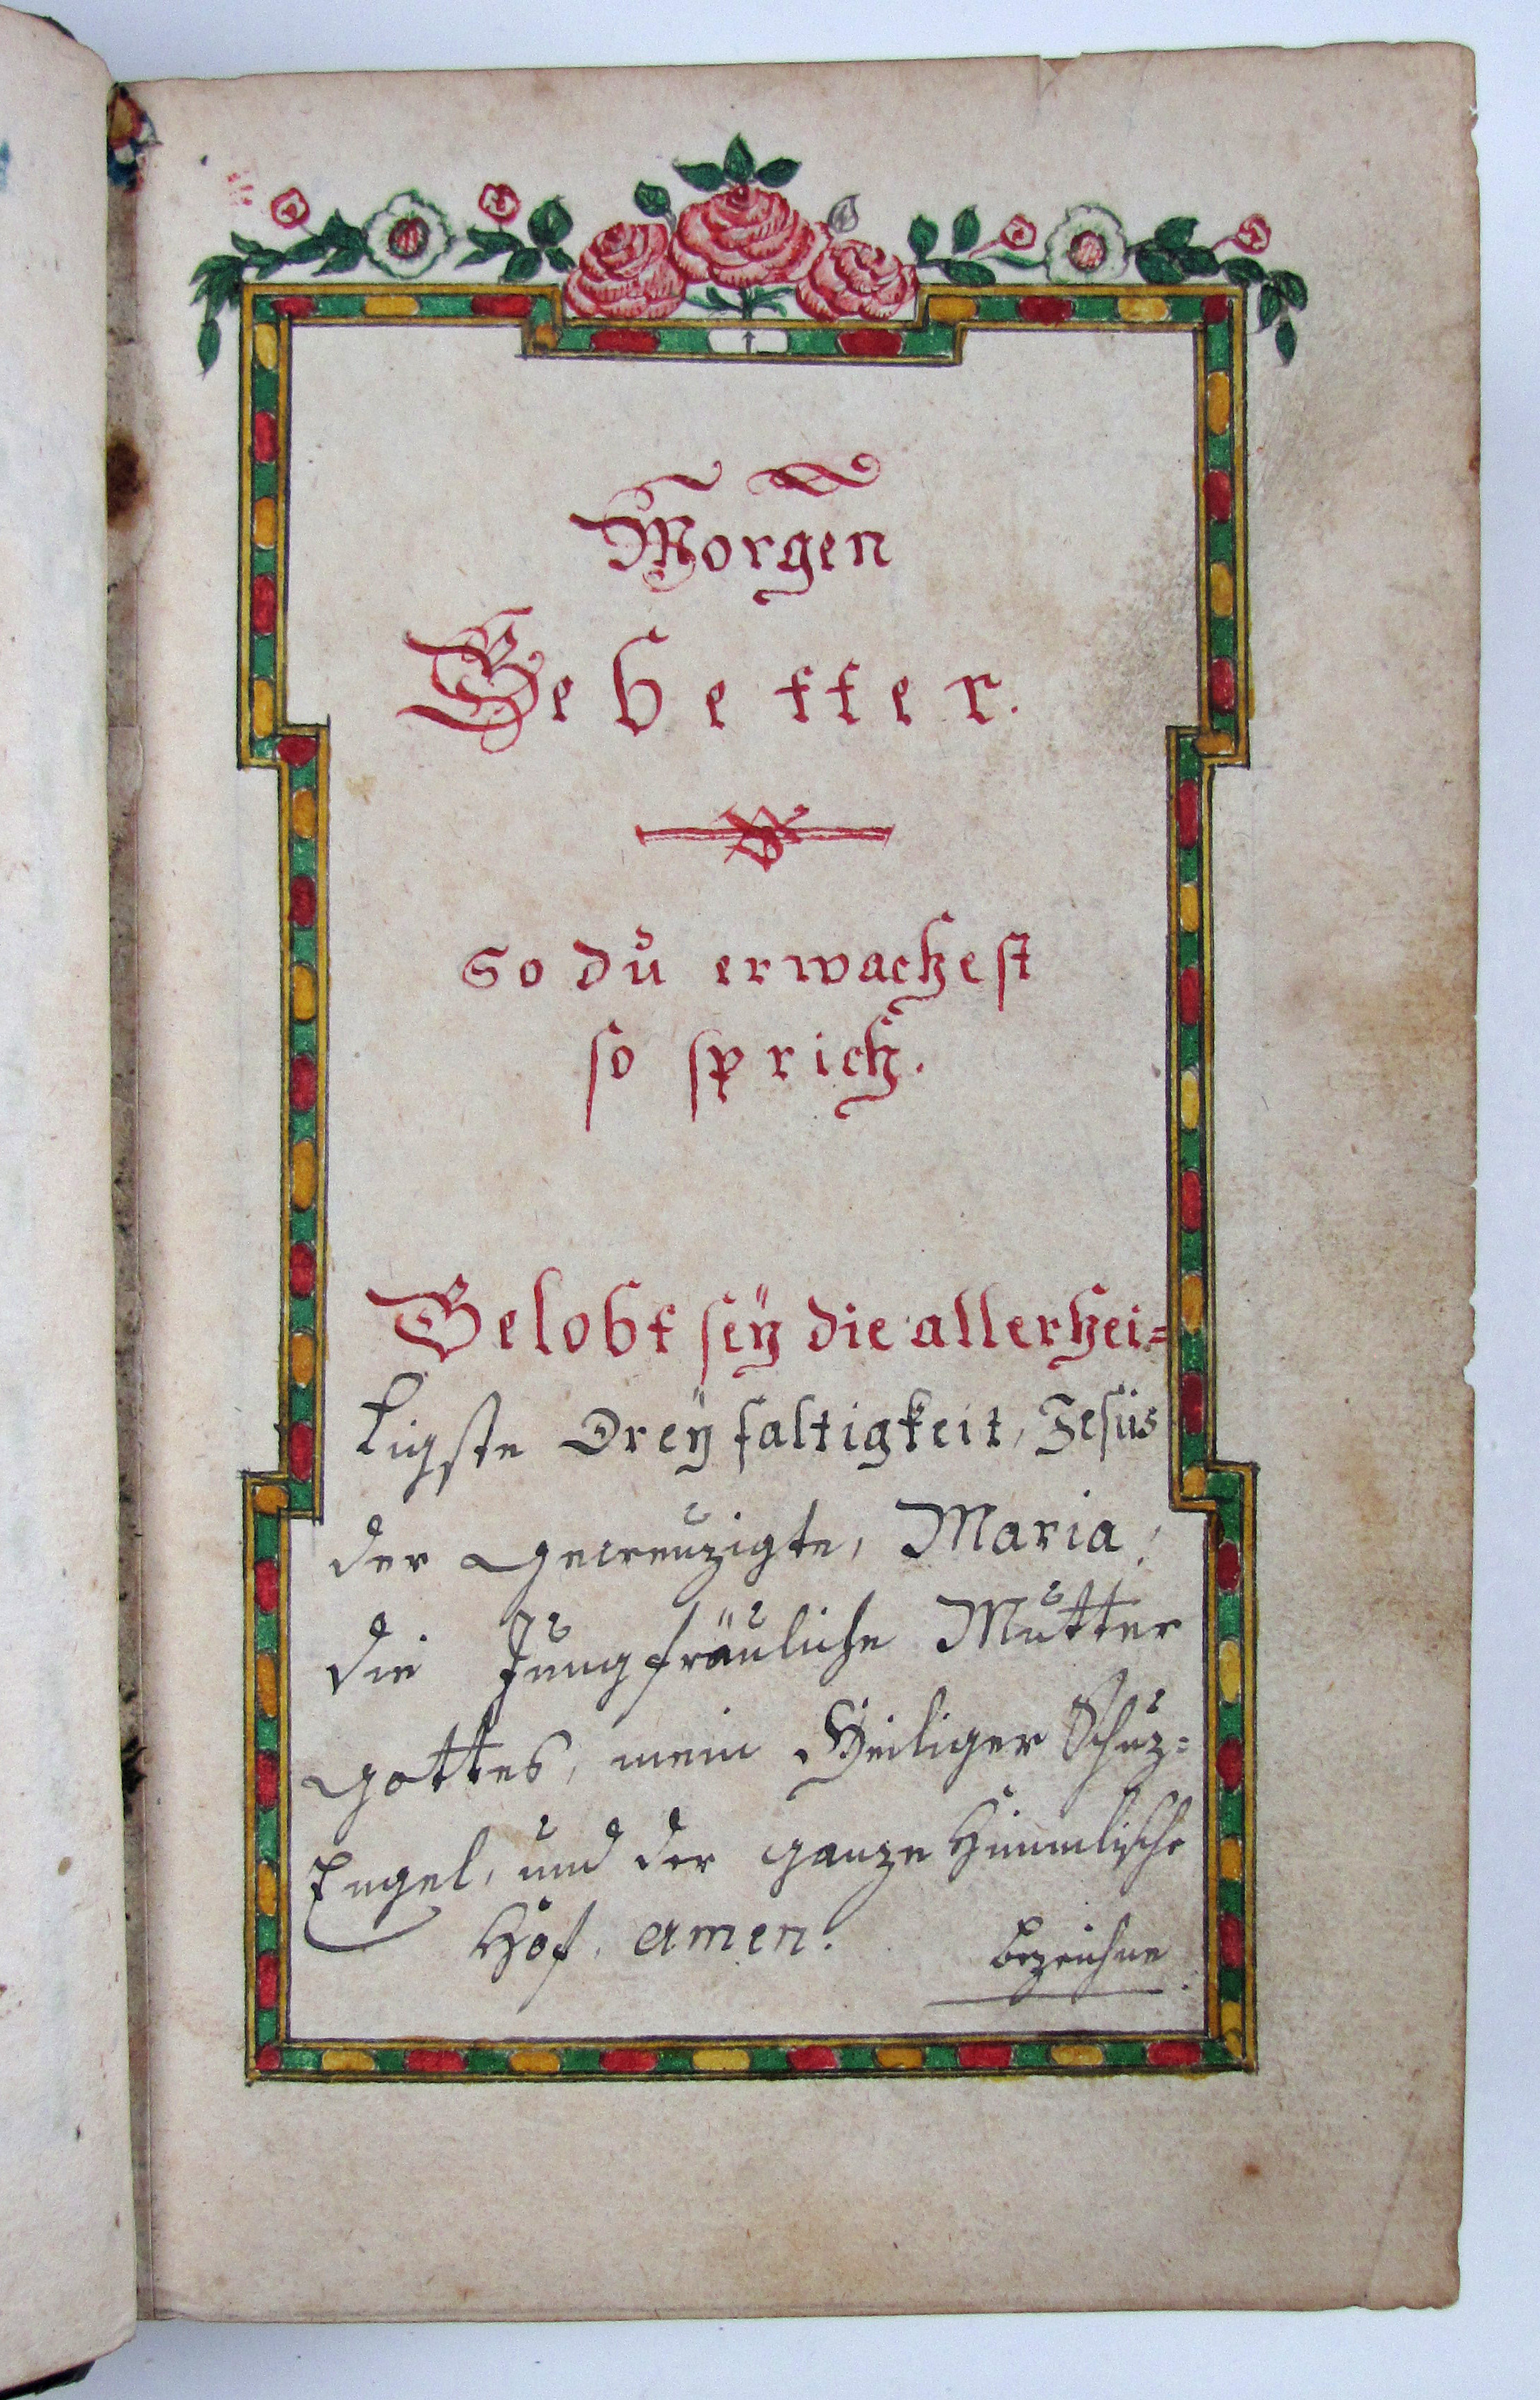 Morgen
Gebetter.
So dŭ erwachest
so sprich.
Gelobt seÿ die allerhei=
ligste Dreÿfaltigkeit, Jesŭs
der gecreuzigte, Maria,
die Jungfräuliche Mŭtter
gottes, mein Heiliger Schuz=
Engel, und der ganze Himmlische
Hof. amen.
bezeichne